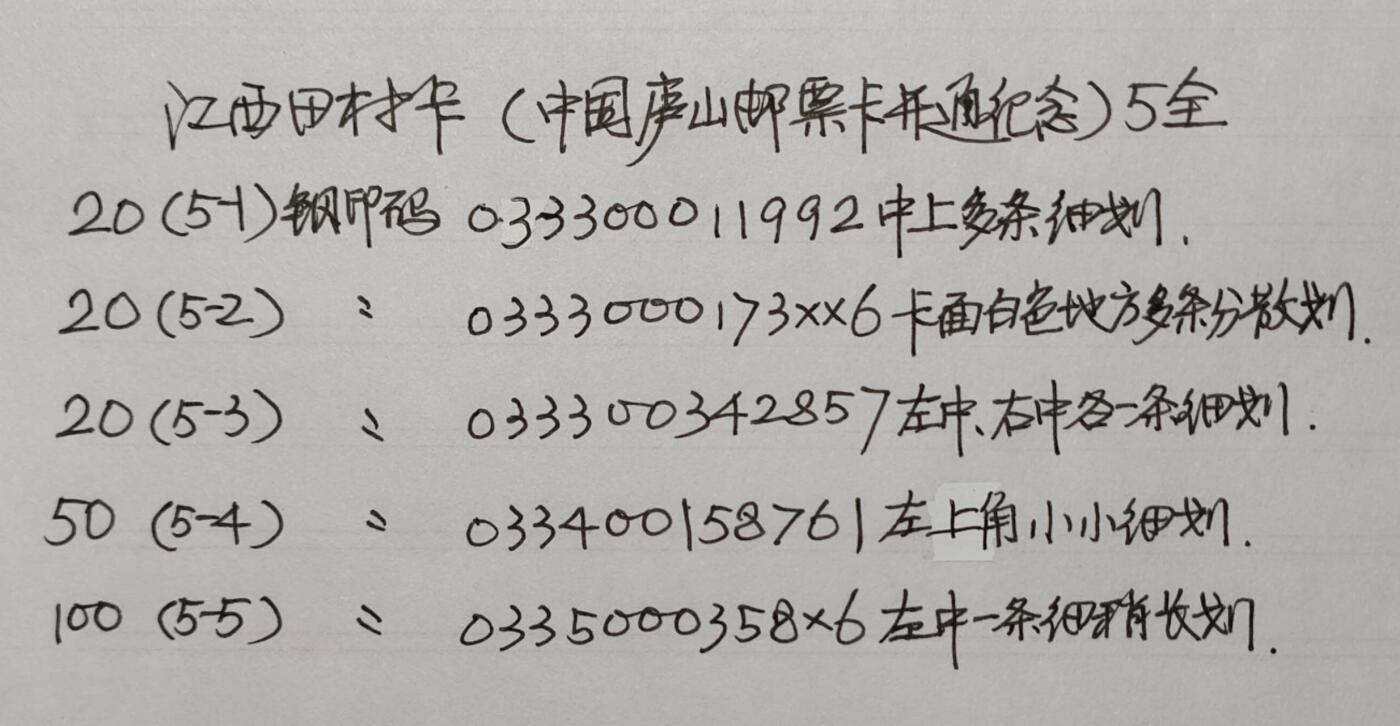 江西田村卡（中国庐山邮票卡开通纪念）5全
20（5-1）钢印码 033300011992中上多条细划．
20（5-2） 〃 0333000173××6卡面白色地方多条分散划．
20（5-3） 〃 033300342857左中、右中各一条细划．
50（5-4） 〃 033400158761左上角小小细划．
100（5-5） 〃 0335000358×6左中一条细稍长划．